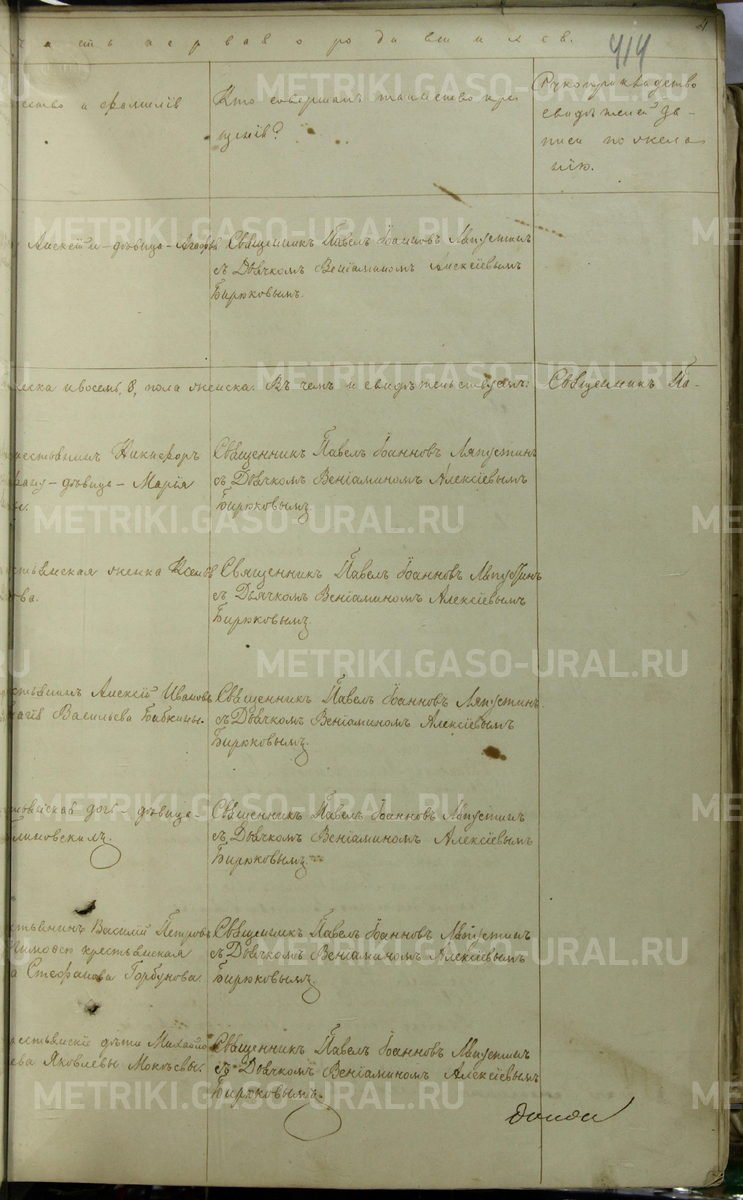 часть первая о родившихся.
414
ество и фамилія
Кто совершалъ таинство кре-
щенія?
Рукоприкладство
свидѣтелей за-
писи по жела-
нію.
Алексѣй и дѣвица Агафь
Священникъ Павелъ Іоанновъ Ляпустинъ
съ Дьячкомъ Веніаминомъ Алексіевымъ
Бирюковымъ.
женска и восемь, 8, пола женска. Въ чемъ и свидѣтельствуемъ:
Священникъ Па-
рестьянинъ Никифоръ
дѣвица Марія
Священникъ Павелъ Іоанновъ Ляпустинъ
съ Дьячкомъ Веніаминомъ Алексіевымъ
Бирюковымъ
стьянская женка Ксенія
ова.
Священникъ Павелъ Іоанновъ Ляпустинъ
съ Дьячкомъ Веніаминомъ Алексіевымъ
Бирюковымъ
стьянинъ Алексій Ивановъ
Васильева Бабкины.
Священникъ Павелъ Іоанновъ Ляпустинъ
съ Дьячкомъ Веніаминомъ Алексіевымъ
Бирюковымъ.
дочь дѣвица
Священникъ Павелъ Іоанновъ Ляпустинъ
съ Дьячкомъ Веніаминомъ Алексіевымъ
Бирюковымъ
стьянинъ Василій Петровъ
крестьянская
а Стефанова Горбунова
Священникъ Павелъ Іоанновъ Ляпустинъ
съ Дьячкомъ Веніаминомъ Алексіевымъ
Бирюковымъ.
рестьянскіе дѣти Михайло
ева Яковлевы Мокѣевы.
Священникъ Павелъ Іоанновъ Ляпустинъ
съ Дьячкомъ Веніаминомъ Алексіевымъ
Бирюковымъ.
METRIKI.GASO-URAL.RU